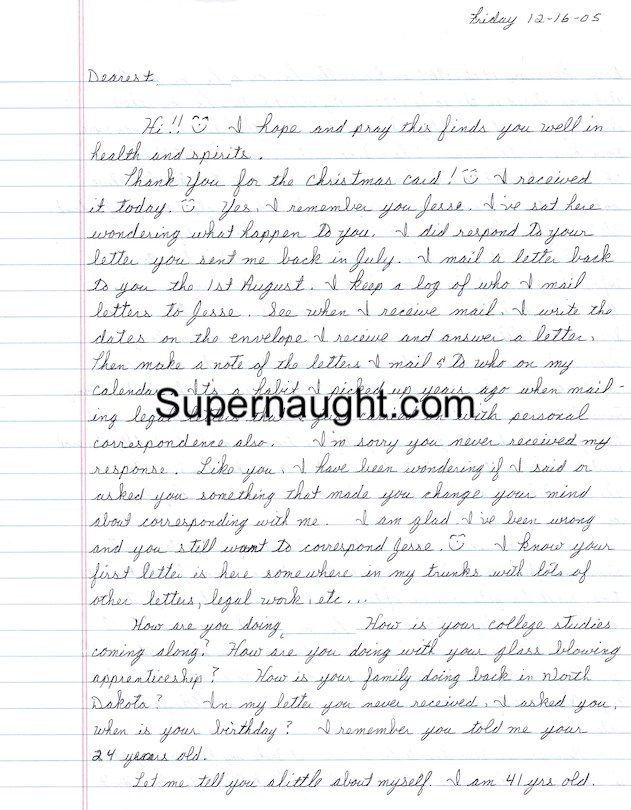 Friday 12-16-05
Dearest
Hi!! I hope and pray this finds you well in
health and spirits.
Thank you for the christmas card! I received
it today. Yes, I remember you Jesse. I've sat here
wondering what happen to you. I did respond to your
letter you sent me back in July. I mail a letter back
to you the 1st August. I keep a log of who I mail
letters to Jesse. See when I receive mail, I write the
dates on the envelope I receive and answer a letter,
then make a note of the letters I mail & to who on my
calendar. It's a habit I picked up years ago when mail-
Supernaught.com
ing legal with personal
correspondence also. I'm sorry you never received my
response. Like you, I have been wondering if I said or
asked you something that made you change your mind
about corresponding with me. I am glad I've been wrong
and you still want to correspond Jesse. I know your
first letter is here somewhere in my trunks with lots of
other letters, legal work, etc...
How are you doing, How is your college studies
coming along? How are you doing with your glass blowing
apprenticeship? How is your family doing back in North
Dakota? In my letter you never received, I asked you,
when is your birthday? I remember you told me your
24 years old.
Let me tell you alittle about myself. I am 41 yrs old.